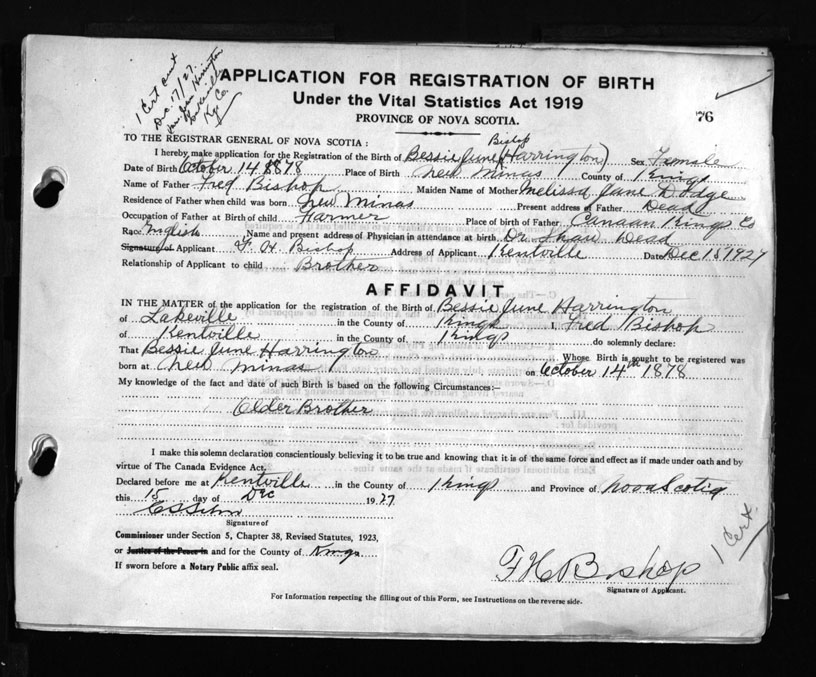 1 Cert sent
Dec. 17/27.
Harrington
Lakeville
Kgs Co.
APPLICATION FOR REGISTRATION OF BIRTH
Under the Vital Statistics Act 1919
PROVINCE OF NOVA SCOTIA.
76
TO THE REGISTRAR GENERAL OF NOVA SCOTIA :
Bishop
I hereby make application for the Registration of the Birth of Bessie June (Harrington) Sex Female
Date of Birth October 14 1878 Place of Birth New Minas County of Kings
Name of Father Fred Bishop Maiden Name of Mother Melissa Jane Dodge
Residence of Father when child was born New Minas Present address of Father Dead
Occupation of Father at Birth of child Farmer Place of birth of Father Canaan Kings Co
Race English Name and present address of Physician in attendance at birth Dr. Shaw Dead
Signature of Applicant F. H. Bishop Address of Applicant Kentville Date Dec 15 1927
Relationship of Applicant to child Brother
AFFIDAVIT
IN THE MATTER of the application for the registration of the Birth of Bessie June Harrington
of Lakeville in the County of Kings I, Fred Bishop
of Kentville in the County of Kings do solemnly declare:
That Bessie June Harrington Whose Birth is sought to be registered was
born at New Minas on October 14th 1878
My knowledge of the fact and date of such Birth is based on the following Circumstances:—
Older Brother
I make this solemn declaration conscientiously believing it to be true and knowing that it is of the same force and effect as if made under oath and by
virtue of The Canada Evidence Act.
Declared before me at Kentville in the County of Kings and Province of Nova Scotia
this 15 day of Dec 1927
Signature of
Commissioner under Section 5, Chapter 38, Revised Statutes, 1923,
or Justice of the Peace in and for the County of Kings
If sworn before a Notary Public affix seal.
1 Cert
F H Bishop
Signature of Applicant.
For Information respecting the filling out of this Form, see Instructions on the reverse side.